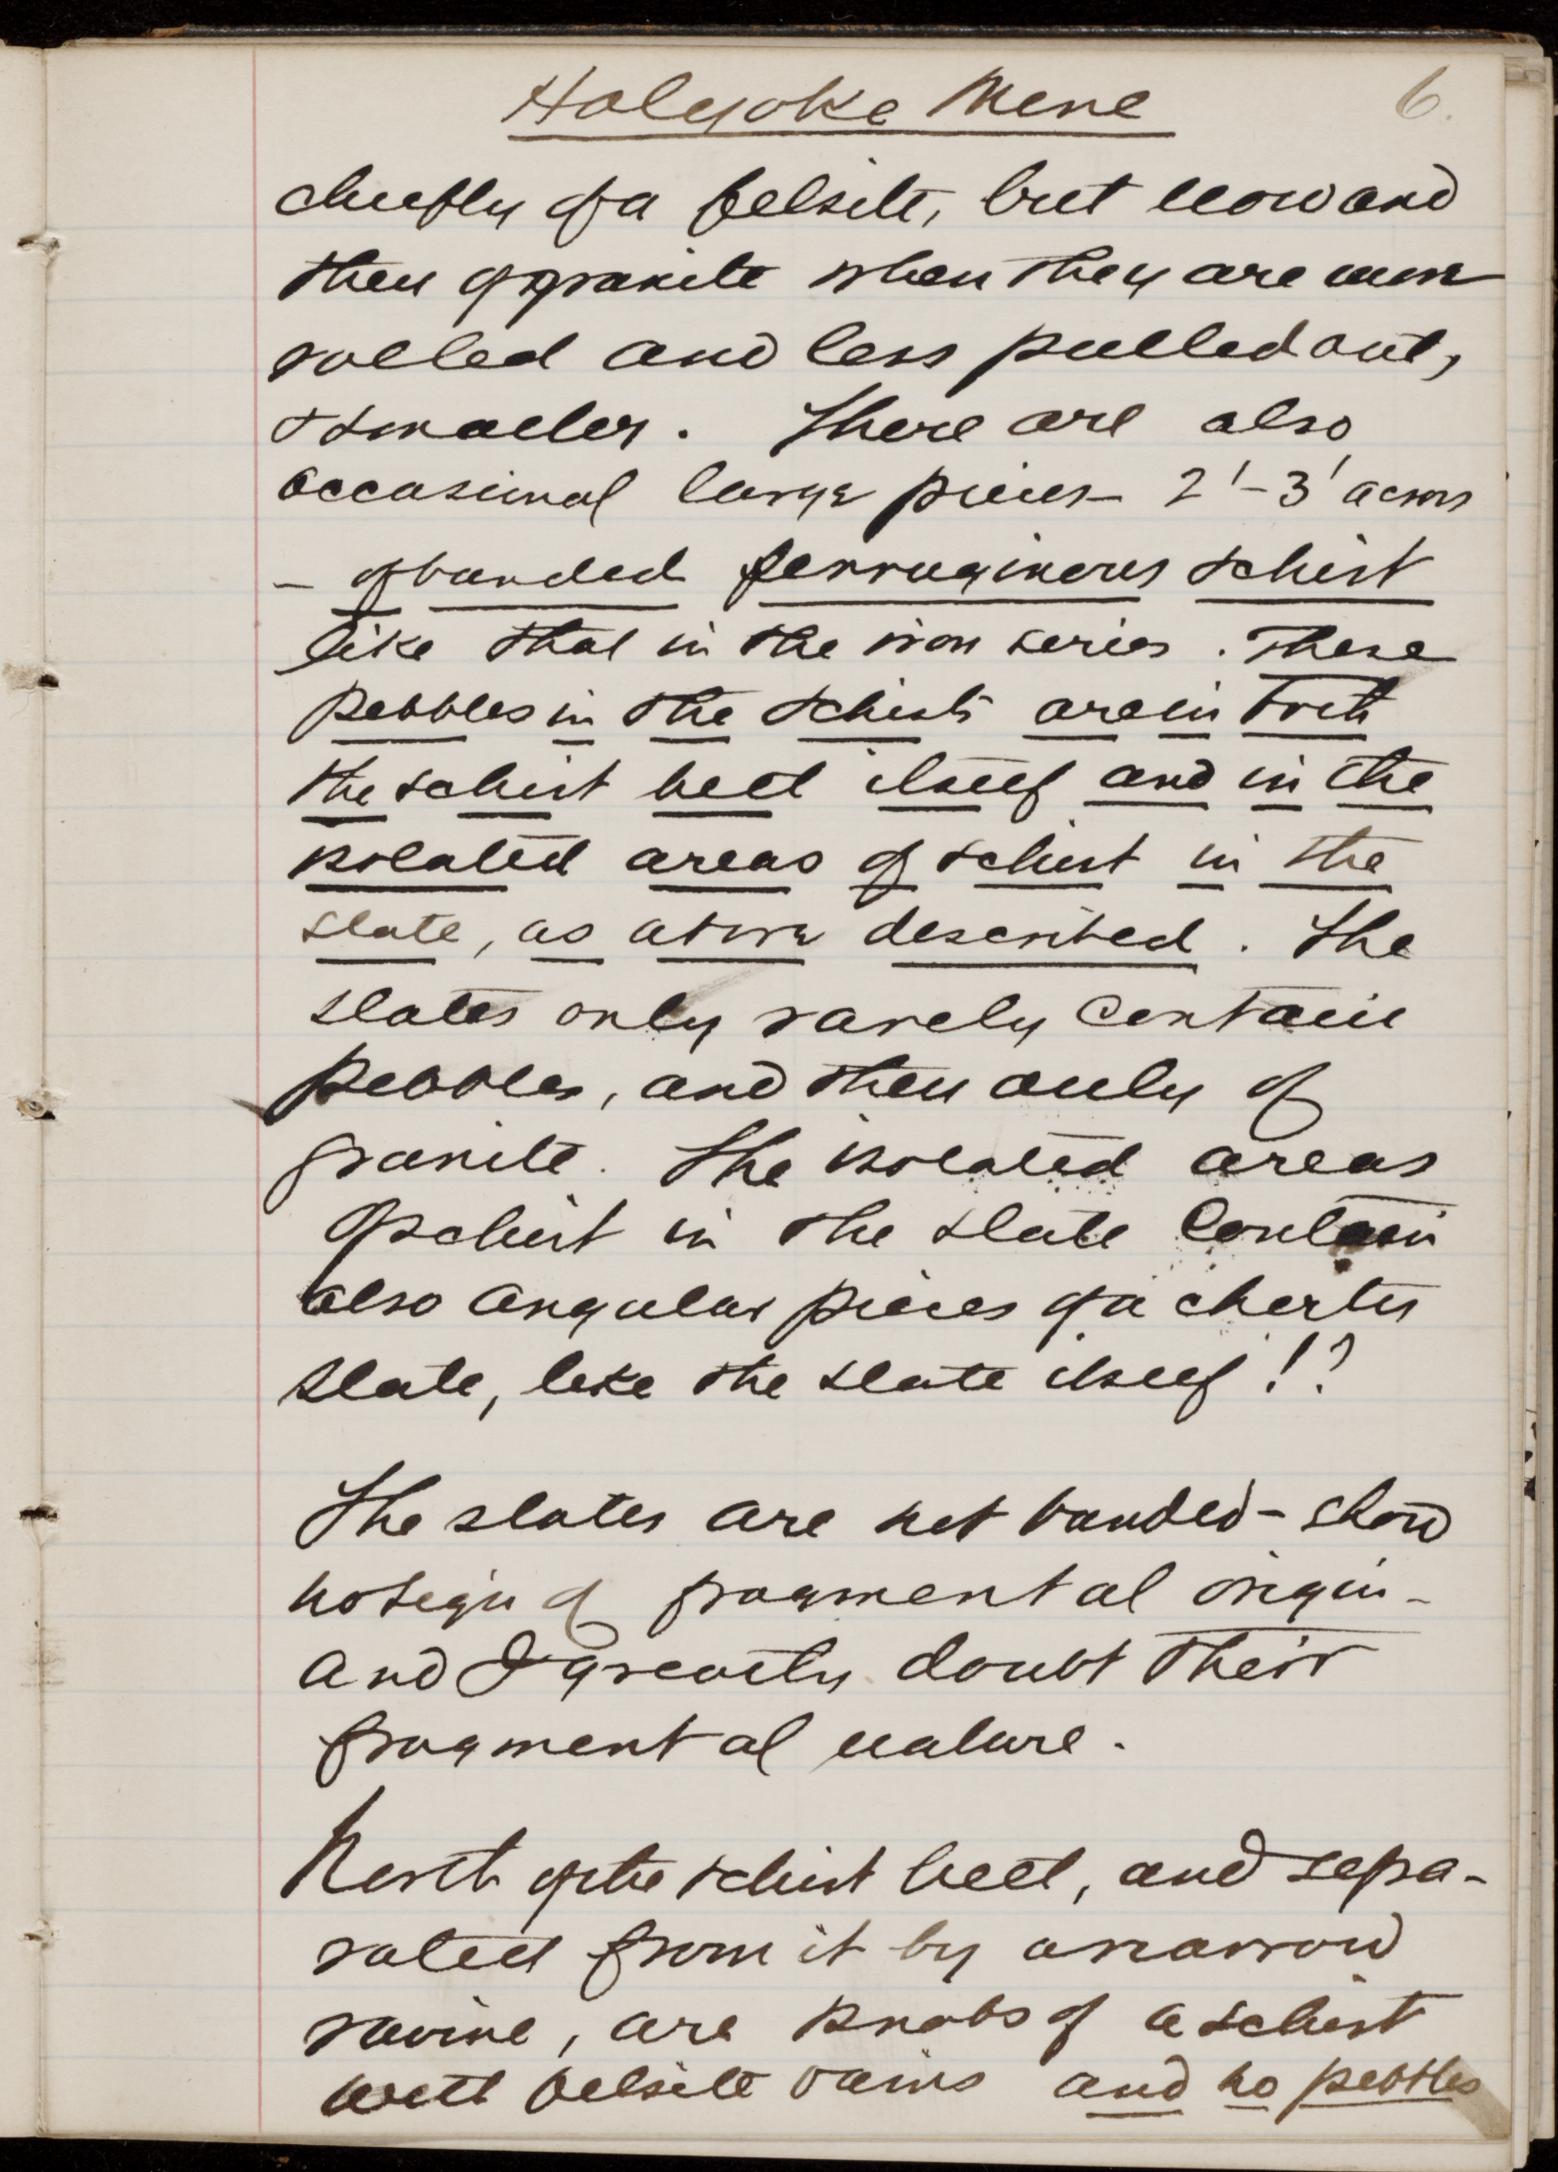 Holyoke Mine 6.
chiefly of a felsite, but now and
then of granite when they are more
rolled and less pulled out,
& smaller. There are also
occasional large pieces 2'-3' across
- of banded ferruginous schist
like that in the iron series. These
pebbles in the schists are in both
the schist belt itself and in the
isolated areas of schist in the
slate, as above described. The
slates only rarely contain
pebbles, and then only of
granite. The isolated areas
of schist in the slate contain
also angular pieces of a cherty
slate, like the slate itself!?
The slates are not banded - show
no sign of fragmental origin -
and I greatly doubt their
fragmental nature.
North of the schist belt, and sepa-
rated from it by a narrow
ravine, are knobs of a schist
with felsite veins and no pebbles